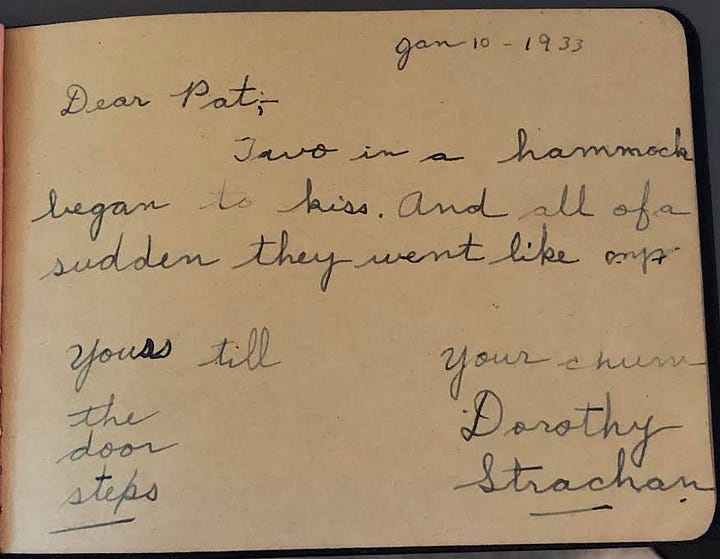 Jan 10 - 1933
Dear Pat;-
Two in a hammock
began to kiss. And all of a
sudden they went like this
Yours till
the
door
steps
Your chum
Dorothy
Strachan.